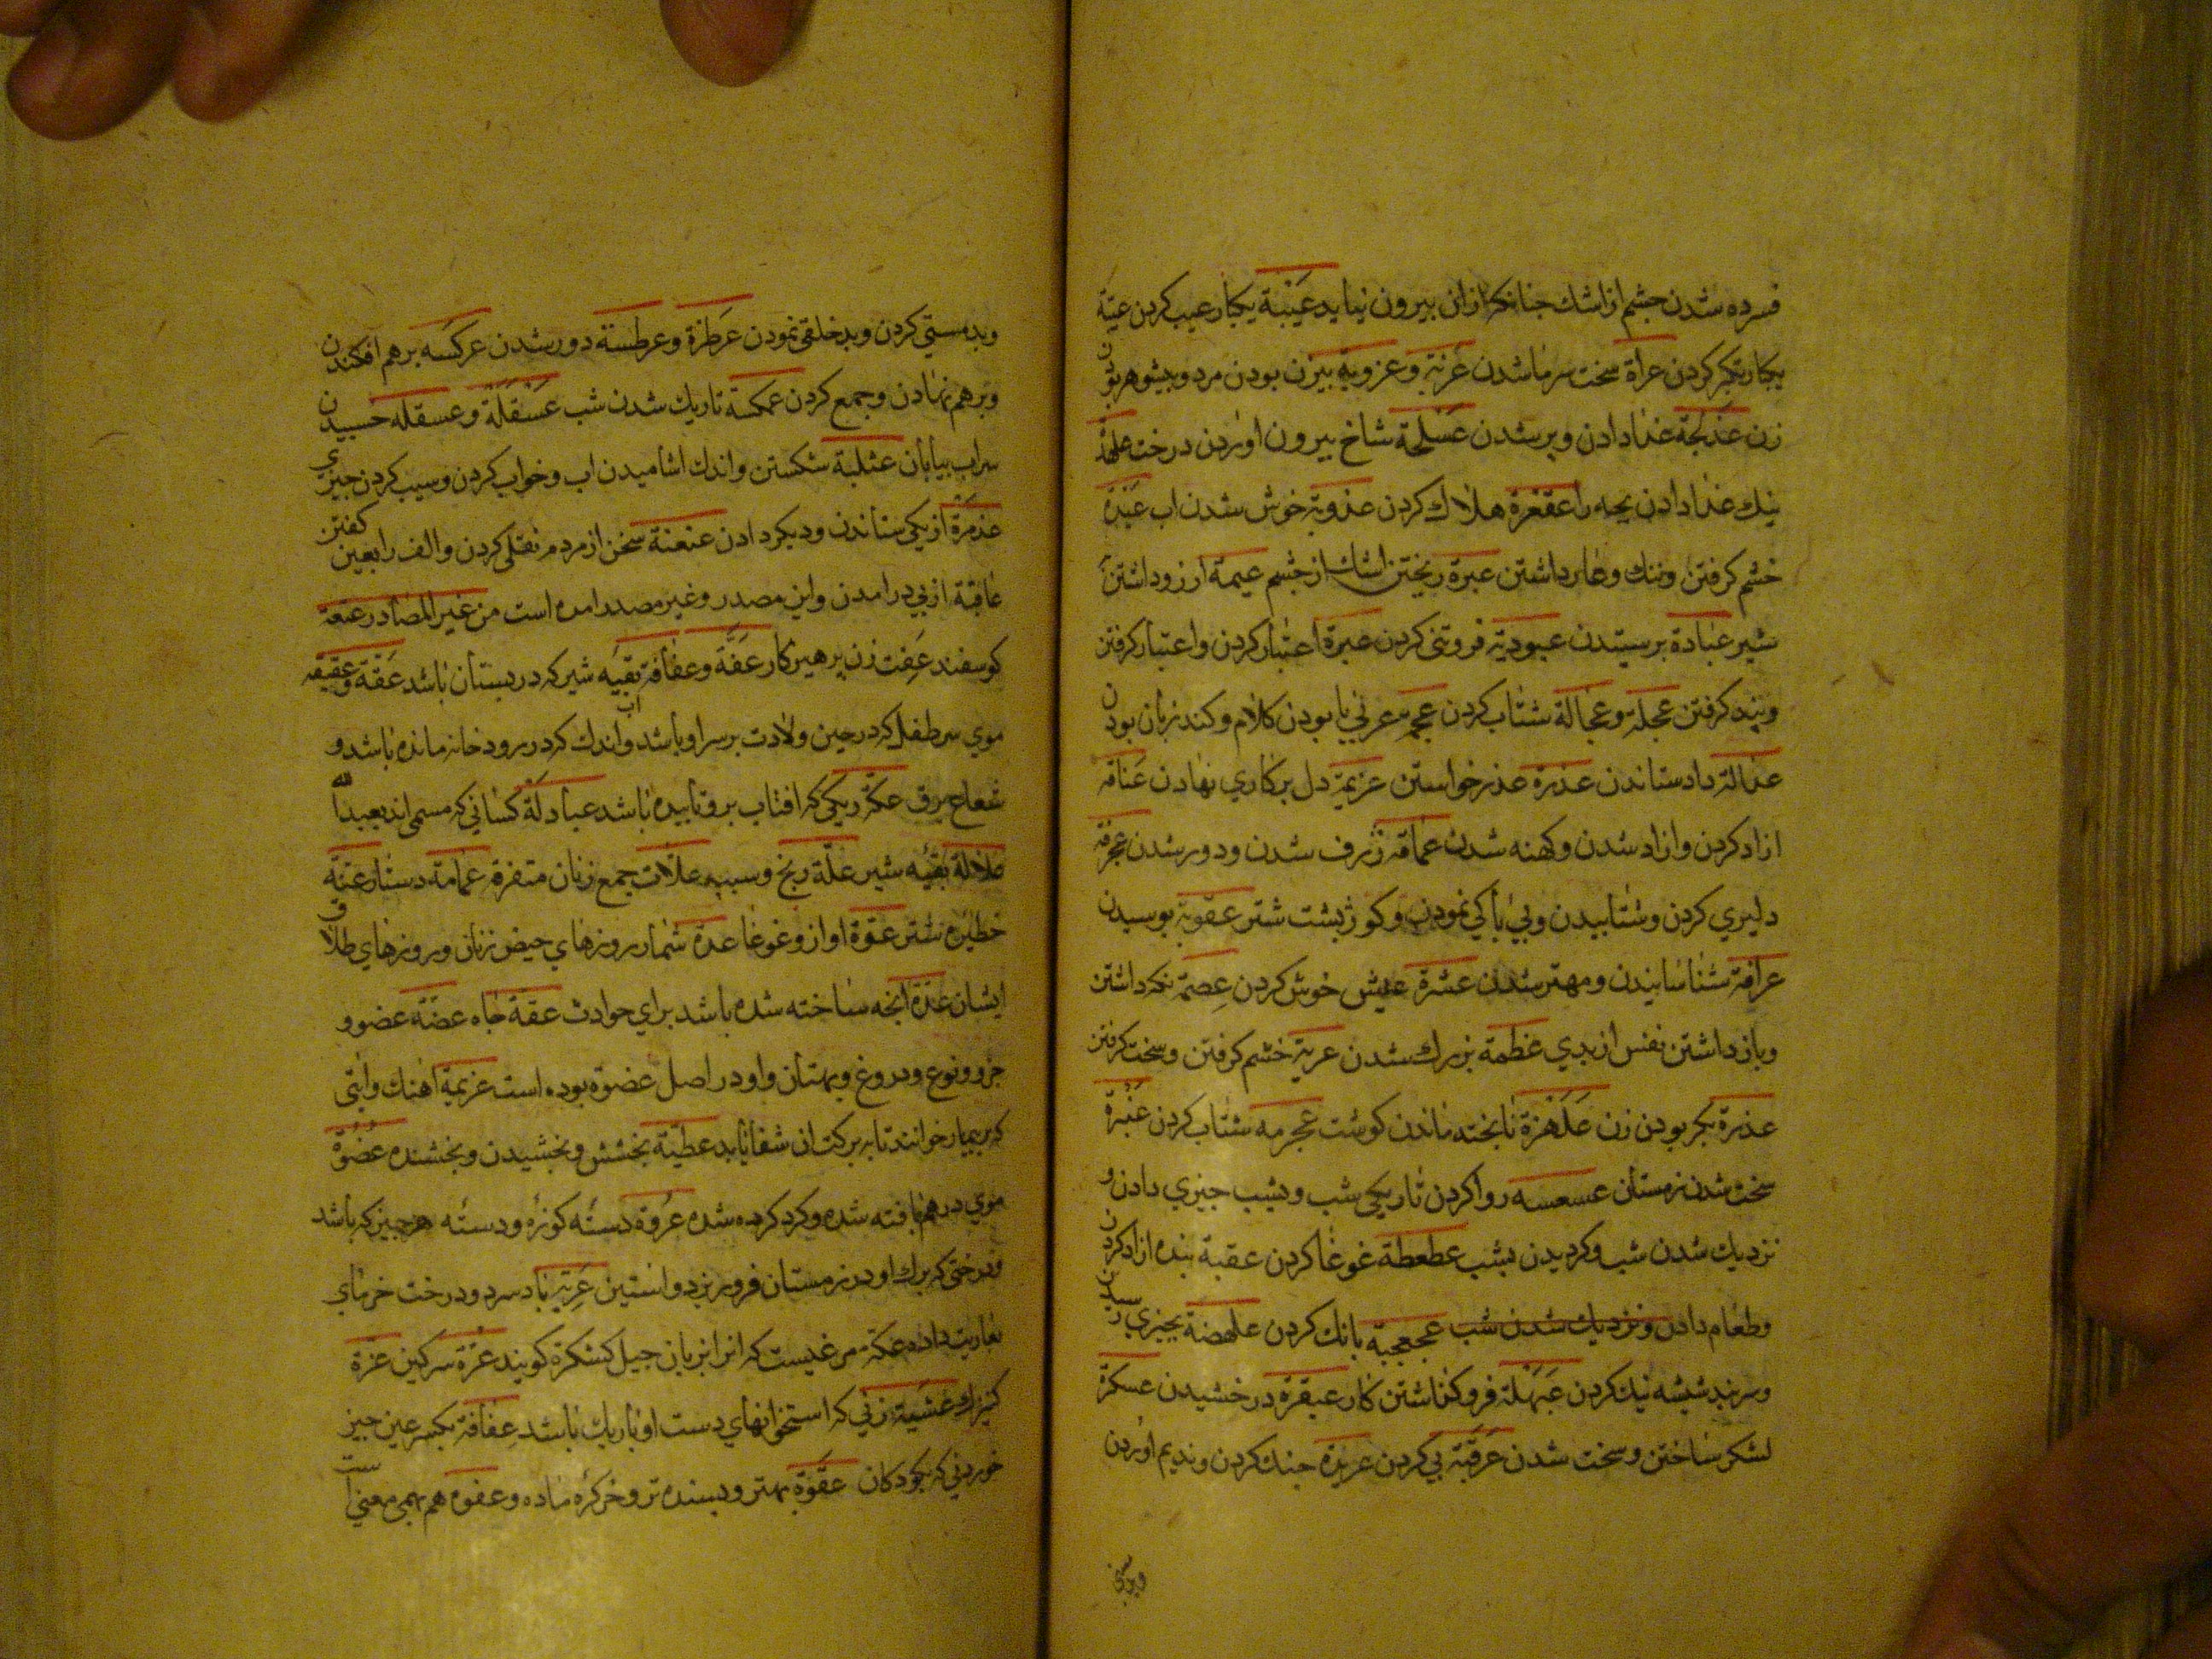 فسرده شدن جشم از اشك جنانكه ازان بيرون نيايد عَيْبَة يكبار عيب كردن عيّة
يكبار تكبر كردن عراة سخت سرما شدن عُزبَة وعزوبة بيزن بودن مرد وبيشوهر بودن
زن عَذلجة غذا دادن وپر شدن عَسْلجة شاخ بيرون اوردن درخت
نيك غذا دادن بچه را عقفرة هلاك كردن عذوبة خوش شدن اب عَبَدة
خشم كرفتن وننك وعار داشتن عبرة ريختن اشك از جشم عيمة ارزو داشتن
شير عبادة برستيدن عبودية فروتنى كردن عبرة اعتبار كردن واعتبار كرفتن
وپند كرفتن عجلة وعجالة شتاب كردن عجمة عربي نا بودن كلام وكند زبان بودن
عدالة داد ستاندن عذرة عذر خواستن عزيمة دل بركاري نهادن عَتاقة
ازاد كردن وازاد شدن وكهنه شدن عماقة ژرف شدن ودور شدن عجرفة
دليري كردن وشتابيدن وبي باكي نمودن وكوژپشت شتر عقوبة بوسيدن
عرافة شناسانيدن ومهتر شدن عشرة عيش خوش كردن عِصمة نكه داشتن
وباز داشتن نفس از بدي عظمة بزرك شدن عربة خشم كرفتن وسخت كرفتن
عذرة بكر بودن زن عَلَهْزة نا پخته ماندن كوشت عجرمه شتاب كردن عَنْبَرة
سخت شدن زمستان عسعسه روا كردن تاريكي شب وبشب جيزي دادن و
نزديك شدن شب وكرديدن بشب عطعطة غوغا كردن عقبة بنده ازاد كردن
وطعام دادن ونزديك شدن شب عجعجة بانك كردن علهضة بجيزي رسيدن
وسر بند شيشه نيك كردن عَبْهَلة فرو كذاشتن كار عبقرة درخشيدن عسكرة
لشكر ساختن وسخت شدن عَرقبة بي كردن عربدة جنك كردن ونديم اوردن
وبدمستي كردن وبدخلقى نمودن عَرطزة وعرطسة دور شدن عركسه برهم افكندن
وبرهم نهادن وجمع كردن عمكسة تاريك شدن شب عَسْقلَة وعسقله جسبيدن
سراب بيابان عثلبة شكستن واندك اشاميدن اب وخواب كردن وسيب كردن جيزي
عذمرة از يكي ستاندن وديكر دادن عنعنة سخن از مردم نقل كردن والف را بعين كفتن
عاقبة از پي در امدن واين مصدر وغير مصدر امده است من غير المصادر عنعة
كوسفند عَفِت زن پرهيزكار عَفّة وعفافة بقيّه شير كه در پستان باشد عَقّة وعقيقه
موي سر طفل كه در حين ولادت بر سر او باشد واندك اب كه در رودخانه مانده باشد و
شعاع برق عكّة ريكي كه افتاب برو تابيده باشد عبادلة كساني كه مسمى اند بعبد الله
علالة بقيّه شير علّة رنج وسبب علّات جمع زنان متفرقه عمامة دستار عنّة
خطيره شتر عقوة اواز وغوغا عدّة شمار روزهاي حيض زنان وروزهاي طلاق
ايشان عُدّة انجه ساخته شده باشد براي حوادث عقة جاه عضّة عضو و
جزو ونوع ودروغ وبهتان واو در اصل عضوة بوده است عزيمة اهنك وايتى
كه بر بيمار خوانند تا به بركت ان شفا يابد عطيّة بخشش وبخشيدن وبخشنده عُضُوَة
موي درهم بافته شده وكرد كرده شده عُروة دستّه كوزه ودستّه هر جيز كه باشد
ودرختى كه برك او در زمستان فرو ريزد واستين عَرِيّة باد سرد ودرخت خرماي
بعاريت داده عكّة مرغيست كه انرا بزبان جيل كشكرة كويند عُرّة سركين عزة
كنيزك عَشبَة زني كه استخوانهاي دست او باريك باشد عِفافة بكسر عين جيز
خوردني كه بكودكان عَفّوة بهتر وپسنده تر وخر كره ماده وعفوه هم بهمى معنى است